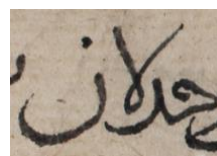 خدلان